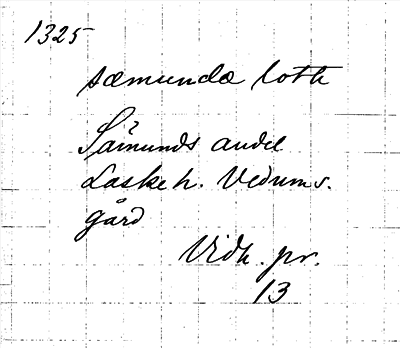 1325
sæmundæ loth
Sämunds andel
Laske h. Vedums.
gård
Vidh. pr.
13